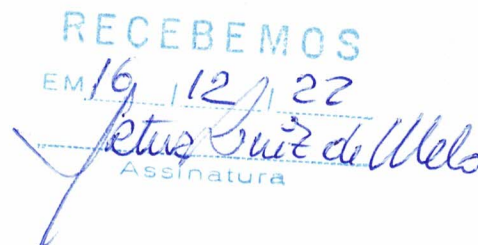 RECEBEMOS
EM 16 / 12 / 22
Luiz de Melo
Assinatura